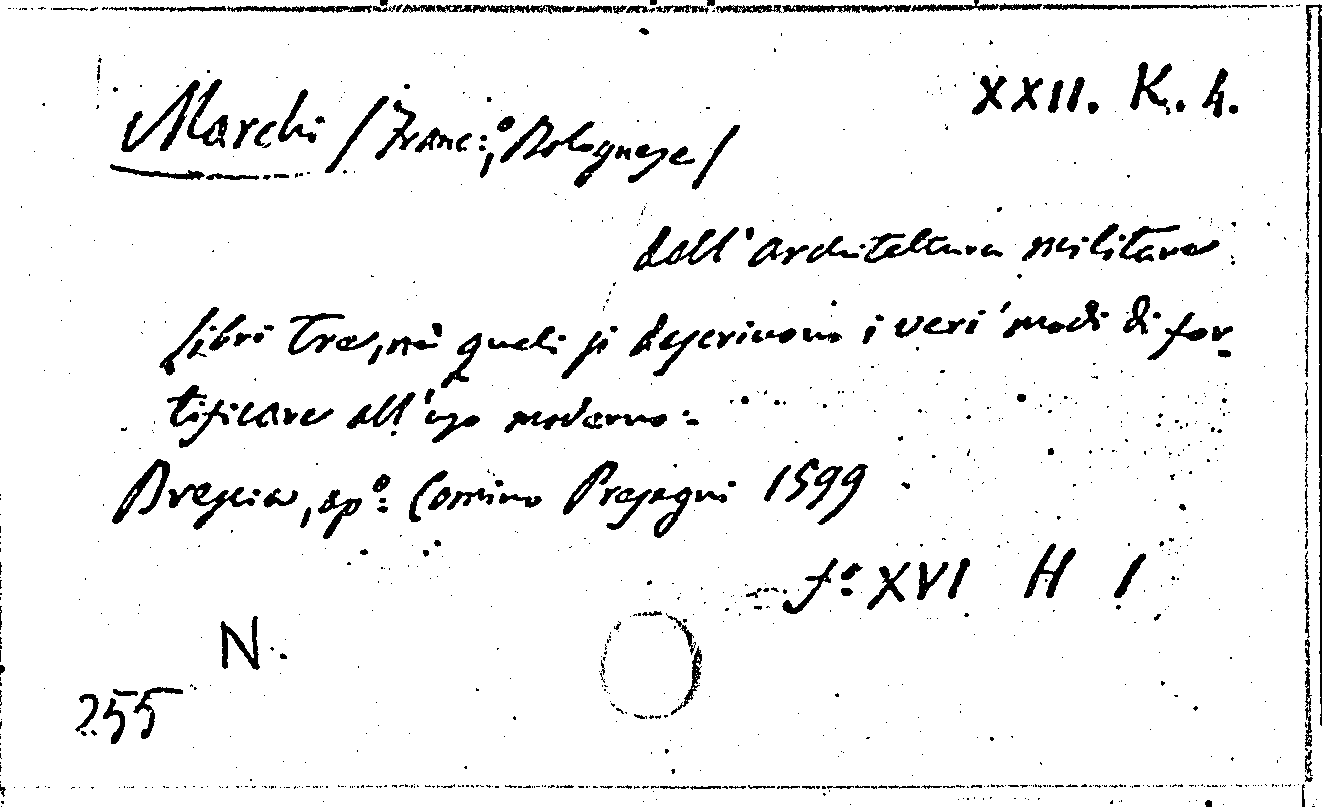 XXII. K. 4.
Marchi / Franc:º, Bolognese /
dell'architettura militare
libri tre, nei quali si descrivono i veri modi di for-
tificare all'uso moderno:
Brescia, apº: Comino Presagni 1599
fº: XVI H I
N.
255